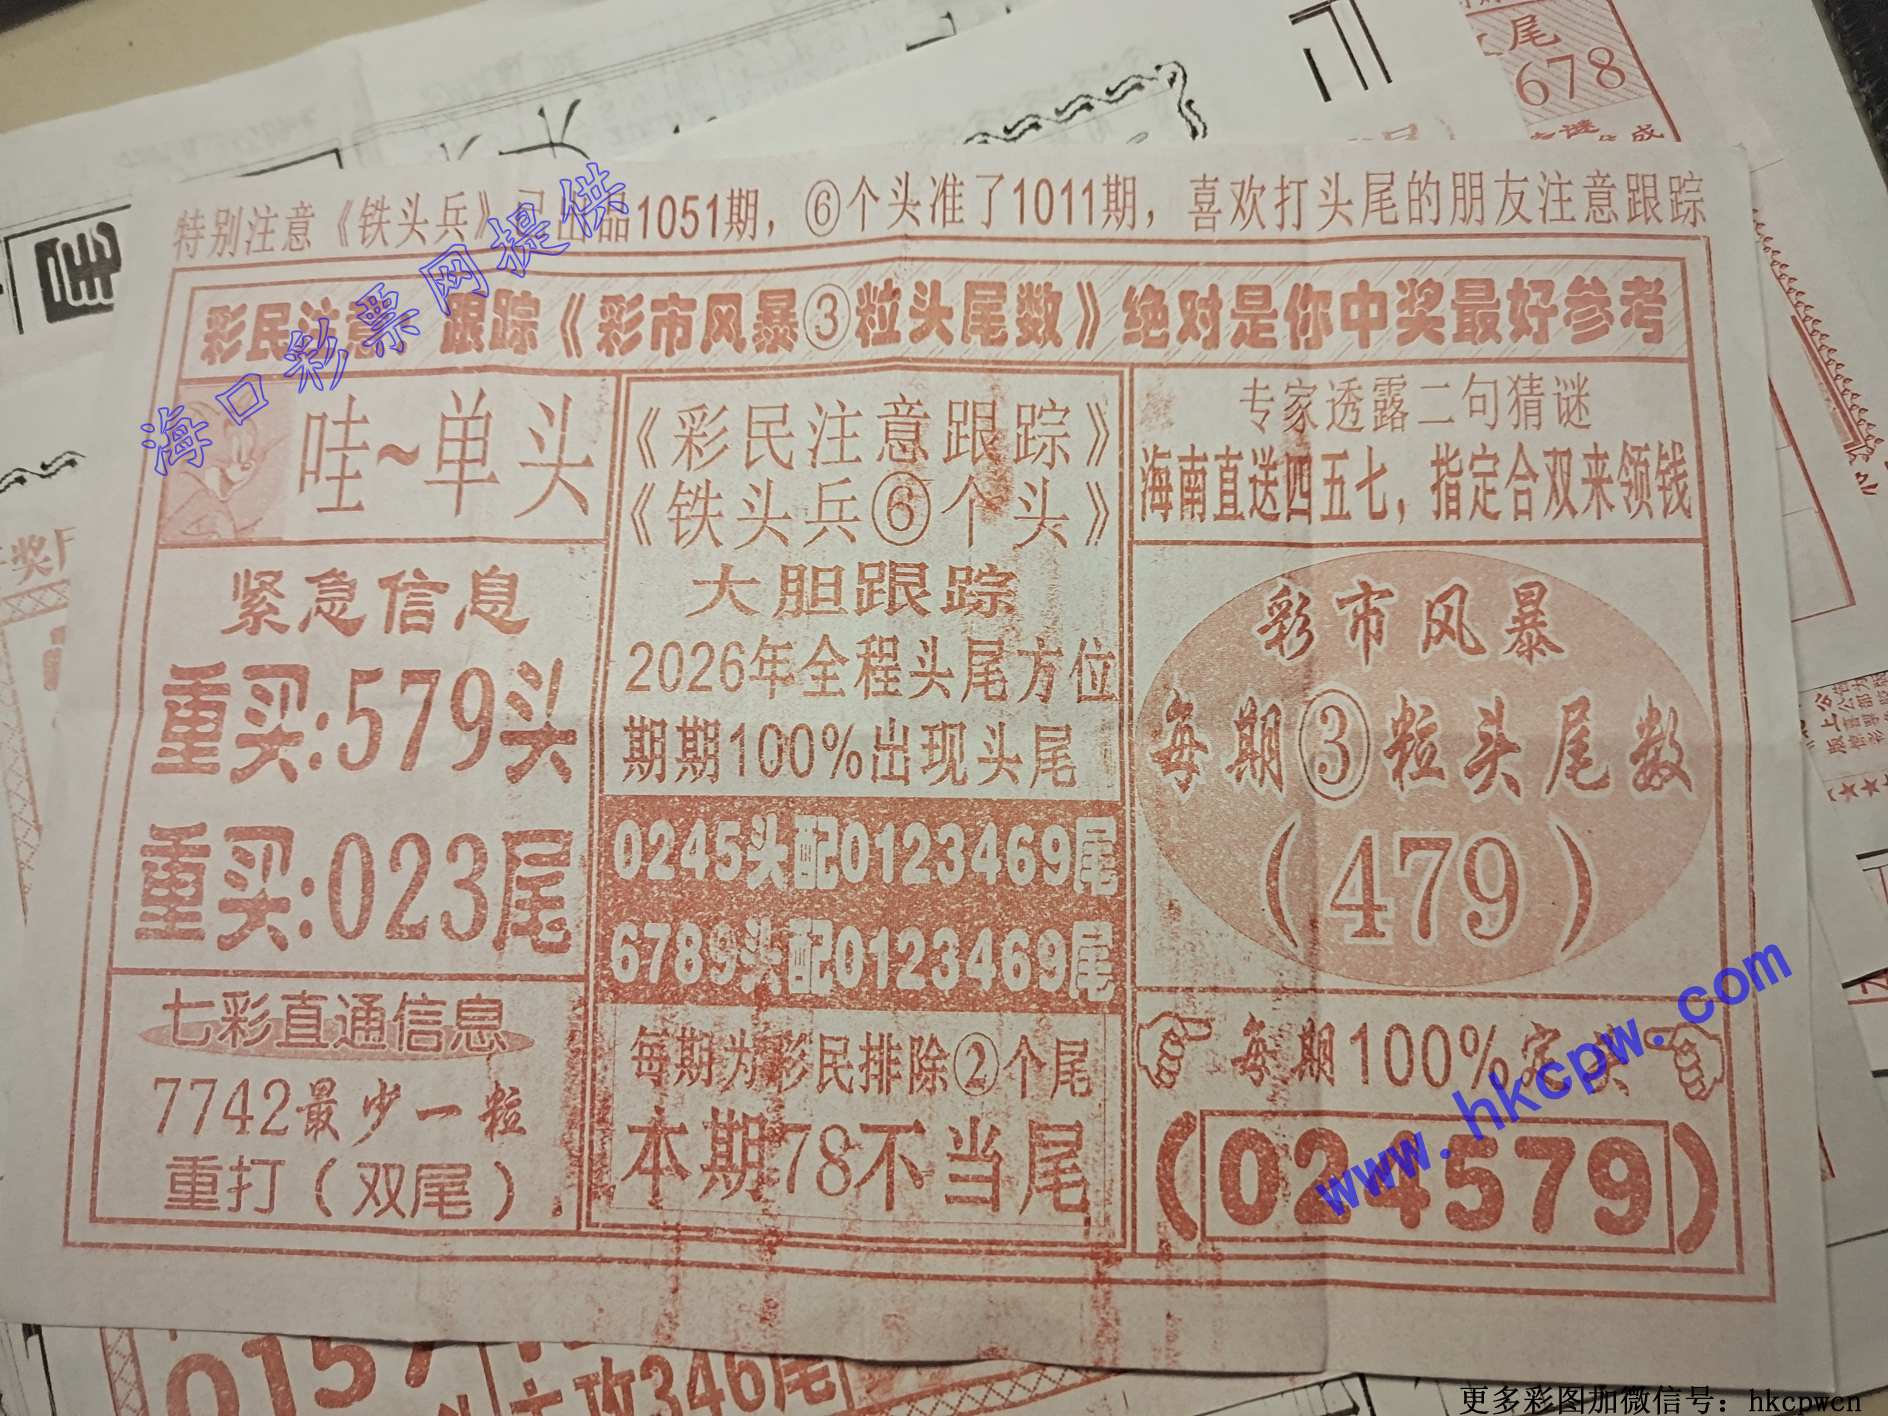 尾
678
特别注意《铁头兵》已出品1051期，⑥个头准了1011期，喜欢打头尾的朋友注意跟踪
彩民注意 跟踪《彩市风暴③粒头尾数》绝对是你中奖最好参考
海口彩票网提供
哇~单头
紧急信息
重买:579头
重买:023尾
七彩直通信息
7742最少一粒
重打(双尾)
《彩民注意跟踪》
《铁头兵⑥个头》
大胆跟踪
2026年全程头尾方位
期期100%出现头尾
0245头配0123469尾
6789头配0123469尾
每期为彩民排除②个尾
本期78不当尾
专家透露二句猜谜
海南直送四五七，指定合双来领钱
彩市风暴
每期③粒头尾数
(479)
每期100%定头
(024579)
www.hkcpw.com
0157
攻346尾
更多彩图加微信号：hkcpwcn